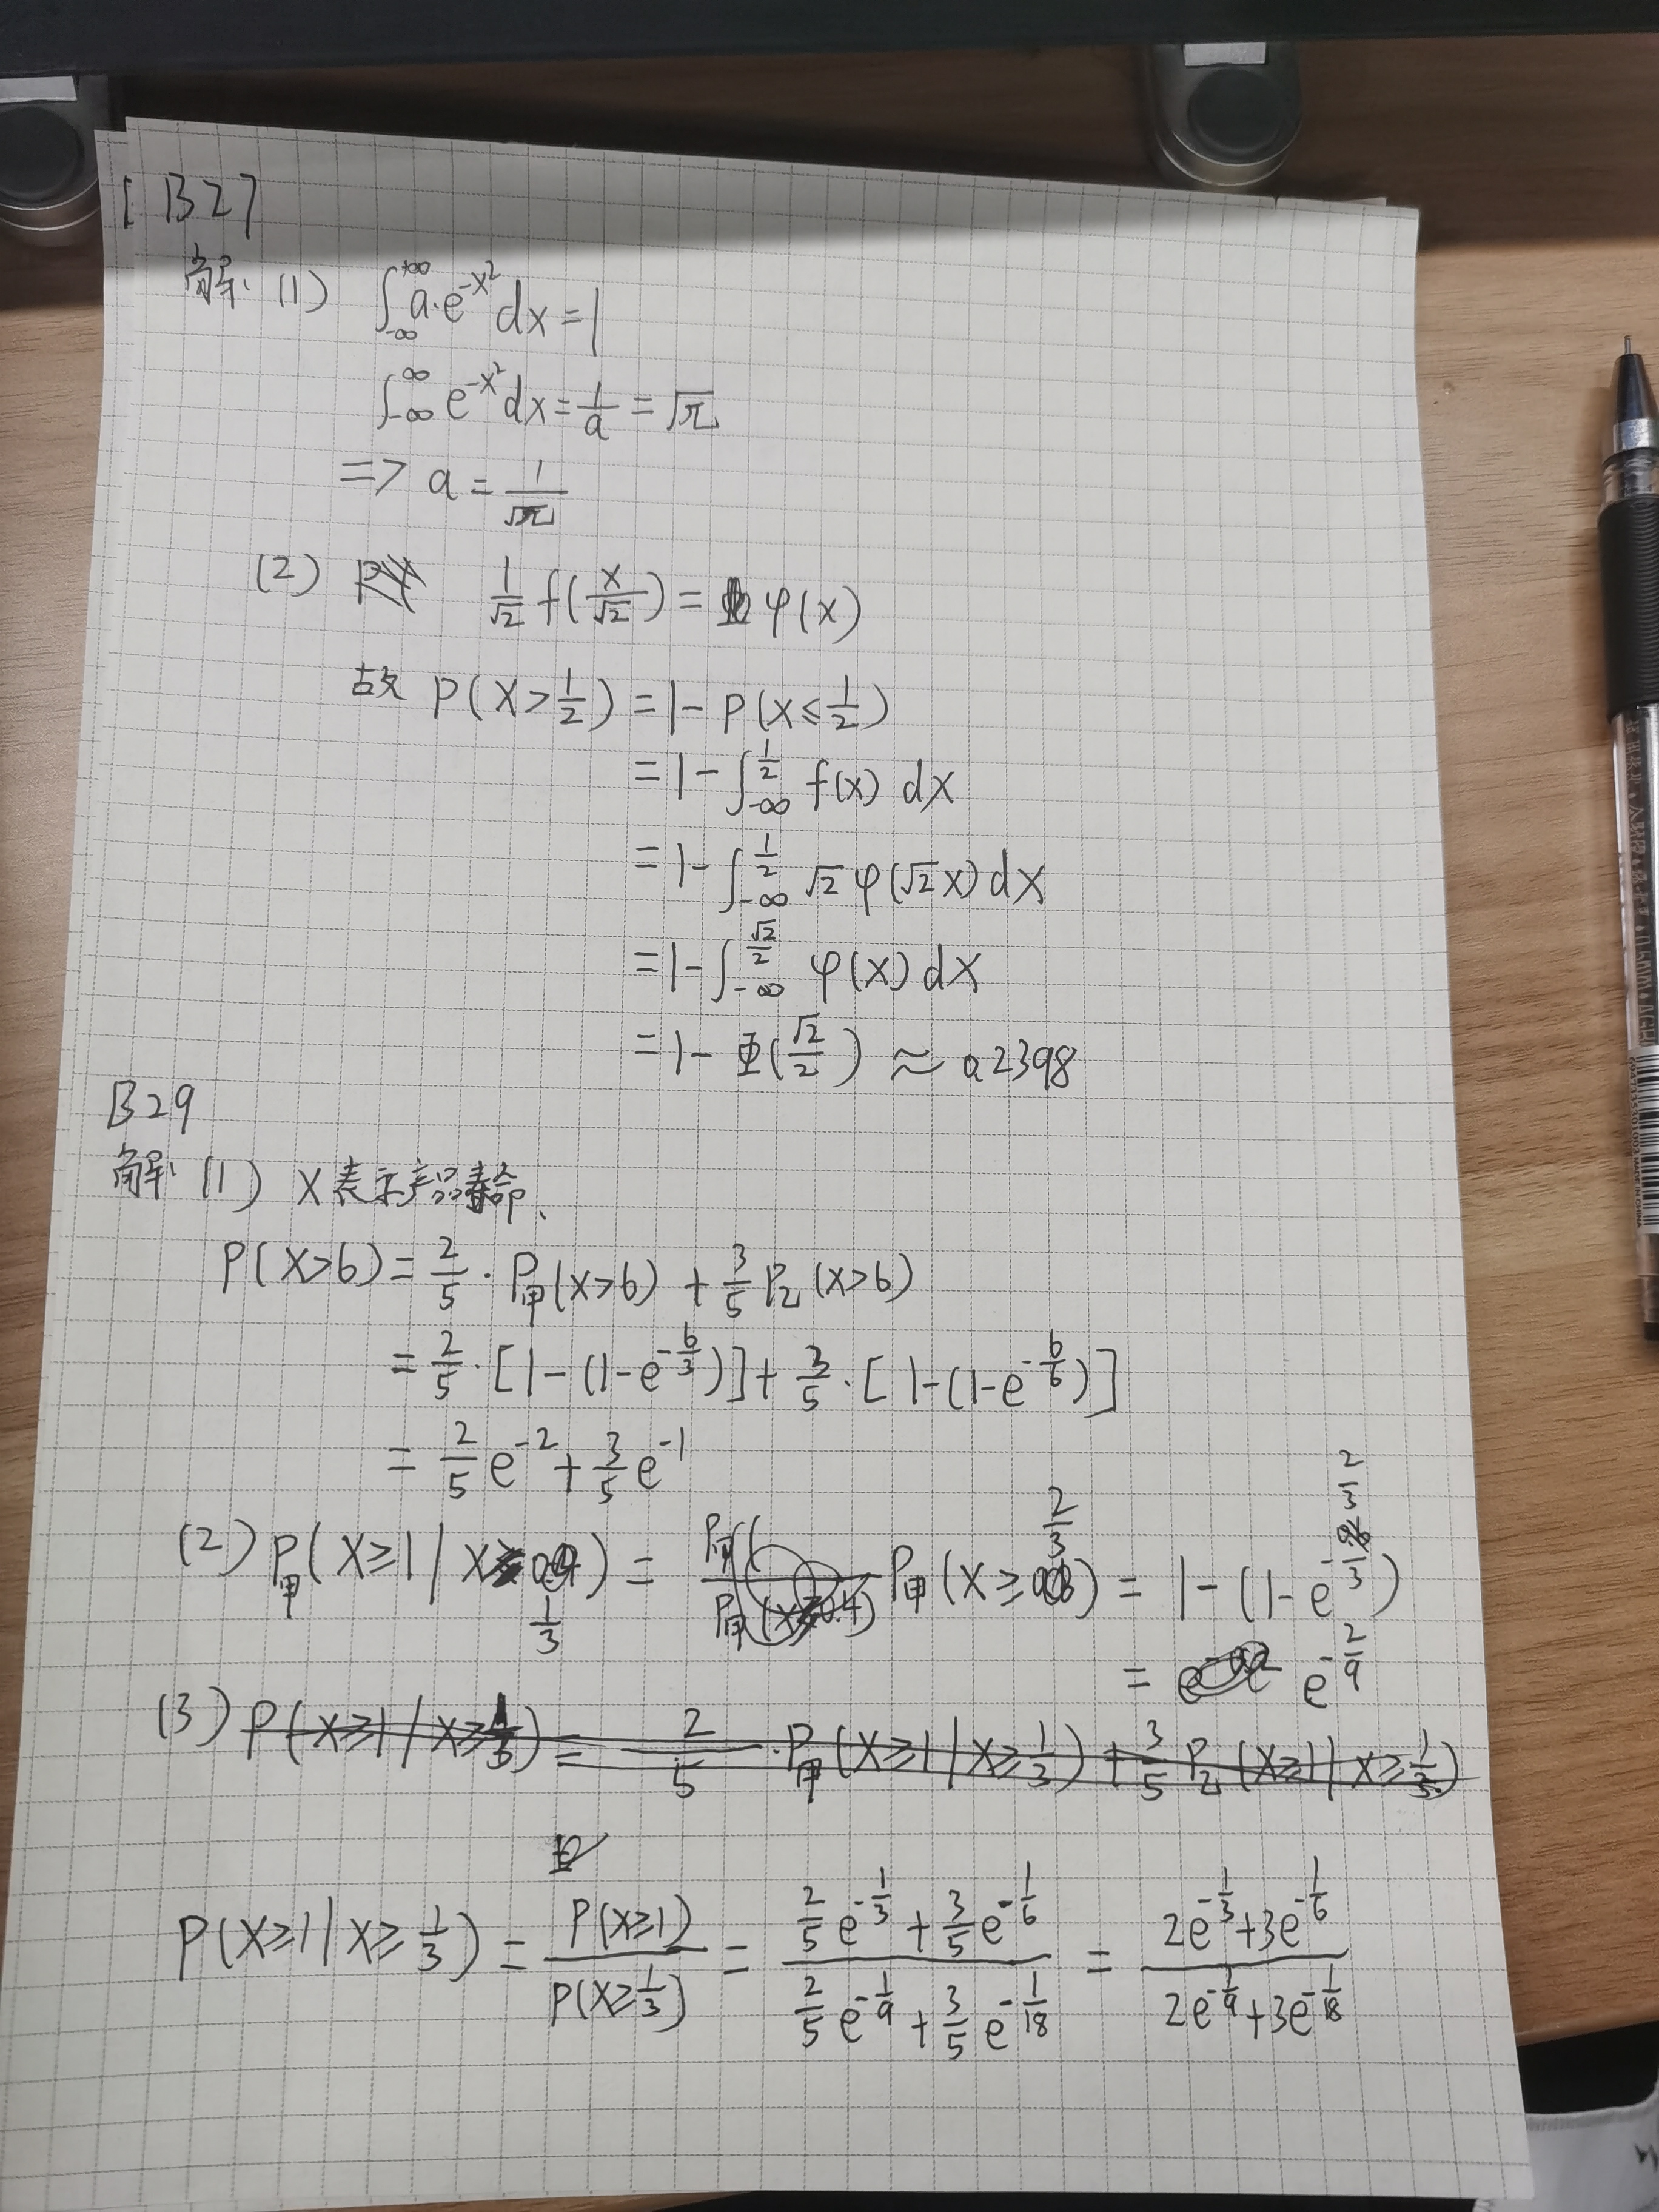 [B27
解: (1) ∫_{-∞}^{+∞} a·e^{-x²} dx = 1
∫_{-∞}^{∞} e^{-x²} dx = 1/a = √π
=> a = 1/√π
(2) 1/√2 f(x/√2) = φ(x)
故 P(X>1/2) = 1-P(X≤1/2)
= 1-∫_{-∞}^{1/2} f(x) dx
= 1-∫_{-∞}^{1/2} √2 φ(√2x) dx
= 1-∫_{-∞}^{√2/2} φ(x) dx
= 1-Φ(√2/2) ≈ 0.2398
B29
解: (1) X表示产品寿命.
P(X>6) = 2/5 · P甲(X>6) + 3/5 P乙(X>6)
= 2/5 · [1-(1-e^{-6/3})] + 3/5 · [1-(1-e^{-6/6})]
= 2/5 e^{-2} + 3/5 e^{-1}
(2) P甲(X≥1 | X≥1/3) = P甲(X≥2/3) = 1-(1-e^{-(2/3)/3})
= e^{-2/9}
(3) P(X≥1 | X≥1/3) = 2/5 · P甲(X≥1 | X≥1/3) + 3/5 P乙(X≥1 | X≥1/3)
P(X≥1 | X≥1/3) = P(X≥1)/P(X≥1/3) = (2/5 e^{-1/3} + 3/5 e^{-1/6})/(2/5 e^{-1/9} + 3/5 e^{-1/18}) = (2e^{-1/3}+3e^{-1/6})/(2e^{-1/9}+3e^{-1/18})